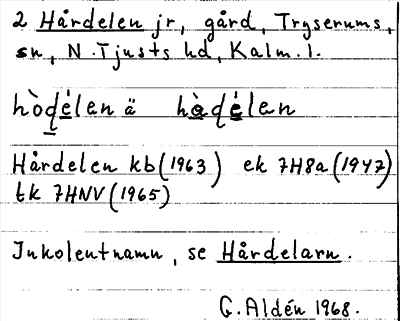 2 Hårdelen jr, gård, Tryserums,
sn, N. Tjusts hd, Kalm. l.
hòḏélen ä hạ̀ḍẹ́len
Hårdelen kb (1963) ek 7H8a (1947)
tk 7HNV (1965)
Inkolentnamn, se Hårdelarn.
G. Aldén 1968.